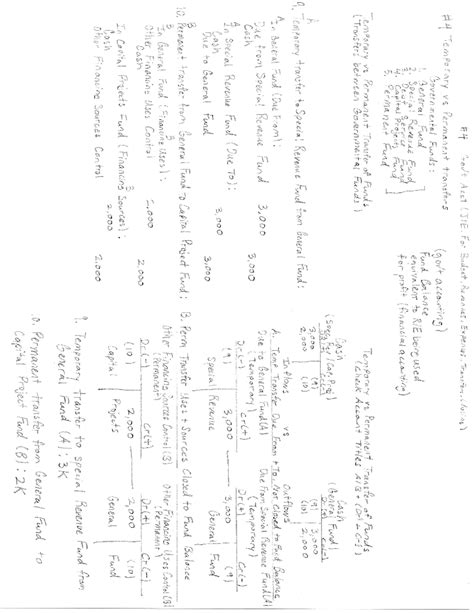 #4 Gov't Acct (J/E for Budget, Revenues, Expense, Transfers, Closing)
#4 Temporary vs Permanent transfers (gov't accounting)
Governmental Funds:
1. General Fund
2. Special Revenue Fund
3. Debt Service Fund
4. Capital Projects Fund
5. Permanent Fund
Fund Balance
equivalent to R/E being used
for profit (financial accounting)
Temporary vs Permanent Transfer of Funds
(Transfers between Governmental Funds)
9. Temporary transfer to Special Revenue Fund from General Fund:
A
In General Fund (Due From):
Due from Special Revenue Fund 3,000
Cash 3,000
In Special Revenue Fund (Due To):
Cash 3,000
Due to General Fund 3,000
10. Permanent Transfer from General Fund to Capital Project Fund:
B
In General Fund (Financing Uses):
Other Financing Uses Control 2,000
Cash 2,000
In Capital Projects Fund (Financing Sources):
Cash 2,000
Other Financing Sources Control 2,000
Temporary vs Permanent Transfer of Funds
Cash
3,000 (9)
2,000 (10)
Inflows vs Outflows
Cash
(General Fund)
(9) 3,000
(10) 2,000
A. Temp. Transfer Due From + To Not closed to Fund Balance
Due to General Fund (A) Due from Special Revenue Fund (A)
(Temporary) (Temporary)
(9) 3,000 3,000 (9)
Special Revenue General Fund
B. Perm. Transfer Uses + Sources Closed to Fund Balance
Other Financing Sources Control (B) Other Financing Uses Control (B)
(Permanent) (Permanent)
Dr(-) Cr(+) Dr(+) Cr(-)
(10) 2,000 2,000 (10)
Capital Projects General Fund
9. Temporary transfer to special Revenue Fund from
General Fund (A): 3K
10. Permanent transfer from General Fund to
Capital Project Fund (B): 2K